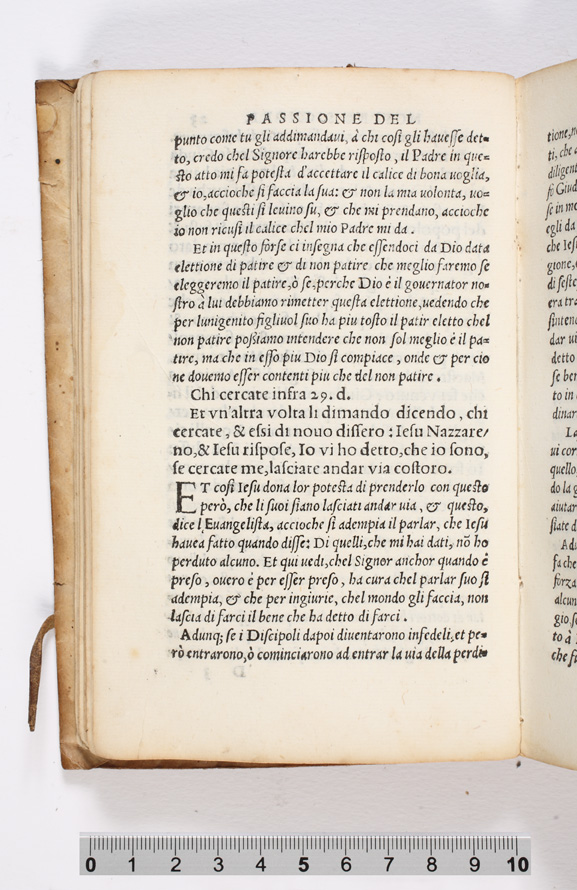 PASSIONE DEL
punto come tu gli addimandaui, à chi cosi gli hauesse det=
to, credo chel Signore harebbe risposto, il Padre in que=
sto atto mi fa potesta d'accettare il calice di bona uoglia,
& io, accioche si faccia la sua: & non la mia uolonta, uo=
glio che questi si leuino su, & che mi prendano, accioche
io non ricusi il calice chel mio Padre mi da.
Et in questo forse ci insegna che essendoci da Dio data
elettione di patire & di non patire che meglio faremo se
eleggeremo il patire, ò se, perche Dio è il gouernator no=
stro à lui debbiamo rimetter questa elettione, uedendo che
per lunigenito figliuol suo ha piu tosto il patir eletto chel
non patire possiamo intendere che non sol meglio è il pa=
tire, ma che in esso piu Dio si compiace, onde & per cio
ne douemo esser contenti piu che del non patire.
Chi cercate infra 29. d.
Et vn'altra volta li dimando dicendo, chi
cercate, & essi di nouo dissero: Iesu Nazzare/
no, & Iesu rispose, Io vi ho detto, che io sono,
se cercate me, lasciate andar via costoro.
ET cosi Iesu dona lor potesta di prenderlo con questo
però, che li suoi siano lasciati andar uia, & questo,
dice l'Euangelista, accioche si adempia il parlar, che Iesu
hauea fatto quando disse: Di quelli, che mi hai dati, nō ho
perduto alcuno. Et qui uedi, chel Signor anchor quando è
preso, ouero è per esser preso, ha cura chel parlar suo si
adempia, & che per ingiurie, chel mondo gli faccia, non
lascia di farci il bene che ha detto di farci.
Adunq; se i Discipoli dapoi diuentarono infedeli, et pe=
rò entrarono, ò cominciarono ad entrar la uia della perdi=
0 1 2 3 4 5 6 7 8 9 10